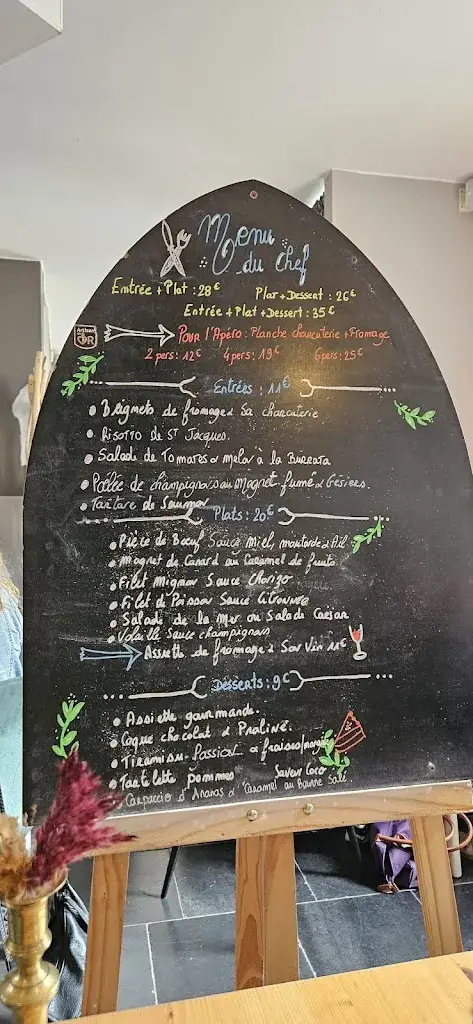 Menu
du chef
Entrée + Plat : 28€ Plat + Dessert : 26€
Entrée + Plat + Dessert : 35€
Artisan OR Pour l'Apéro : Planche charcuterie + Fromage
2 pers : 12€ 4 pers : 19€ 6 pers : 25€
Entrées : 11€
• Beignets de fromage & Sa charcuterie
• Risotto de St Jacques.
• Salade de Tomates & melon à la Burrata
• Poêlée de champignons au Magret fumé & Gésiers.
• Tartare de Saumon
Plats : 20€
• Pièce de Bœuf Sauce Miel, moutarde & Ail
• Magret de Canard au Caramel de fruits
• Filet Mignon Sauce Chorizo
• Filet de Poisson Sauce Citronnée
• Salade de la Mer ou Salade Caesar
• Volaille Sauce champignons
Assiette de fromage & Son Vin 11€
Desserts : 9€
• Assiette gourmande.
• Coque chocolat & Praliné.
• Tiramisu Passion
• Tartelette pommes Saveur Coco
• Carpaccio d'Ananas & Caramel au Beurre Salé.